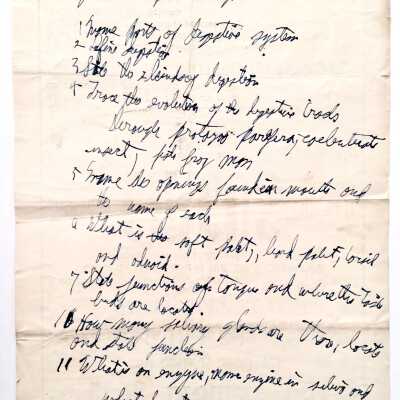 1 Name parts of digestive system
2 Define digestion.
3 State the digestion
4 Trace the evolution of the digestive tracts
through protozoa - porifera, coelenterate
insect, fish frog man
5 Name the openings found in mouth and
to name of each
6 What is soft palate, hard palate,
and
7 State functions of Tongue and where the taste
buds are located.
10 How many salivary glands are there, locate
and state function
11 What is an enzyme, name enzyme in saliva and